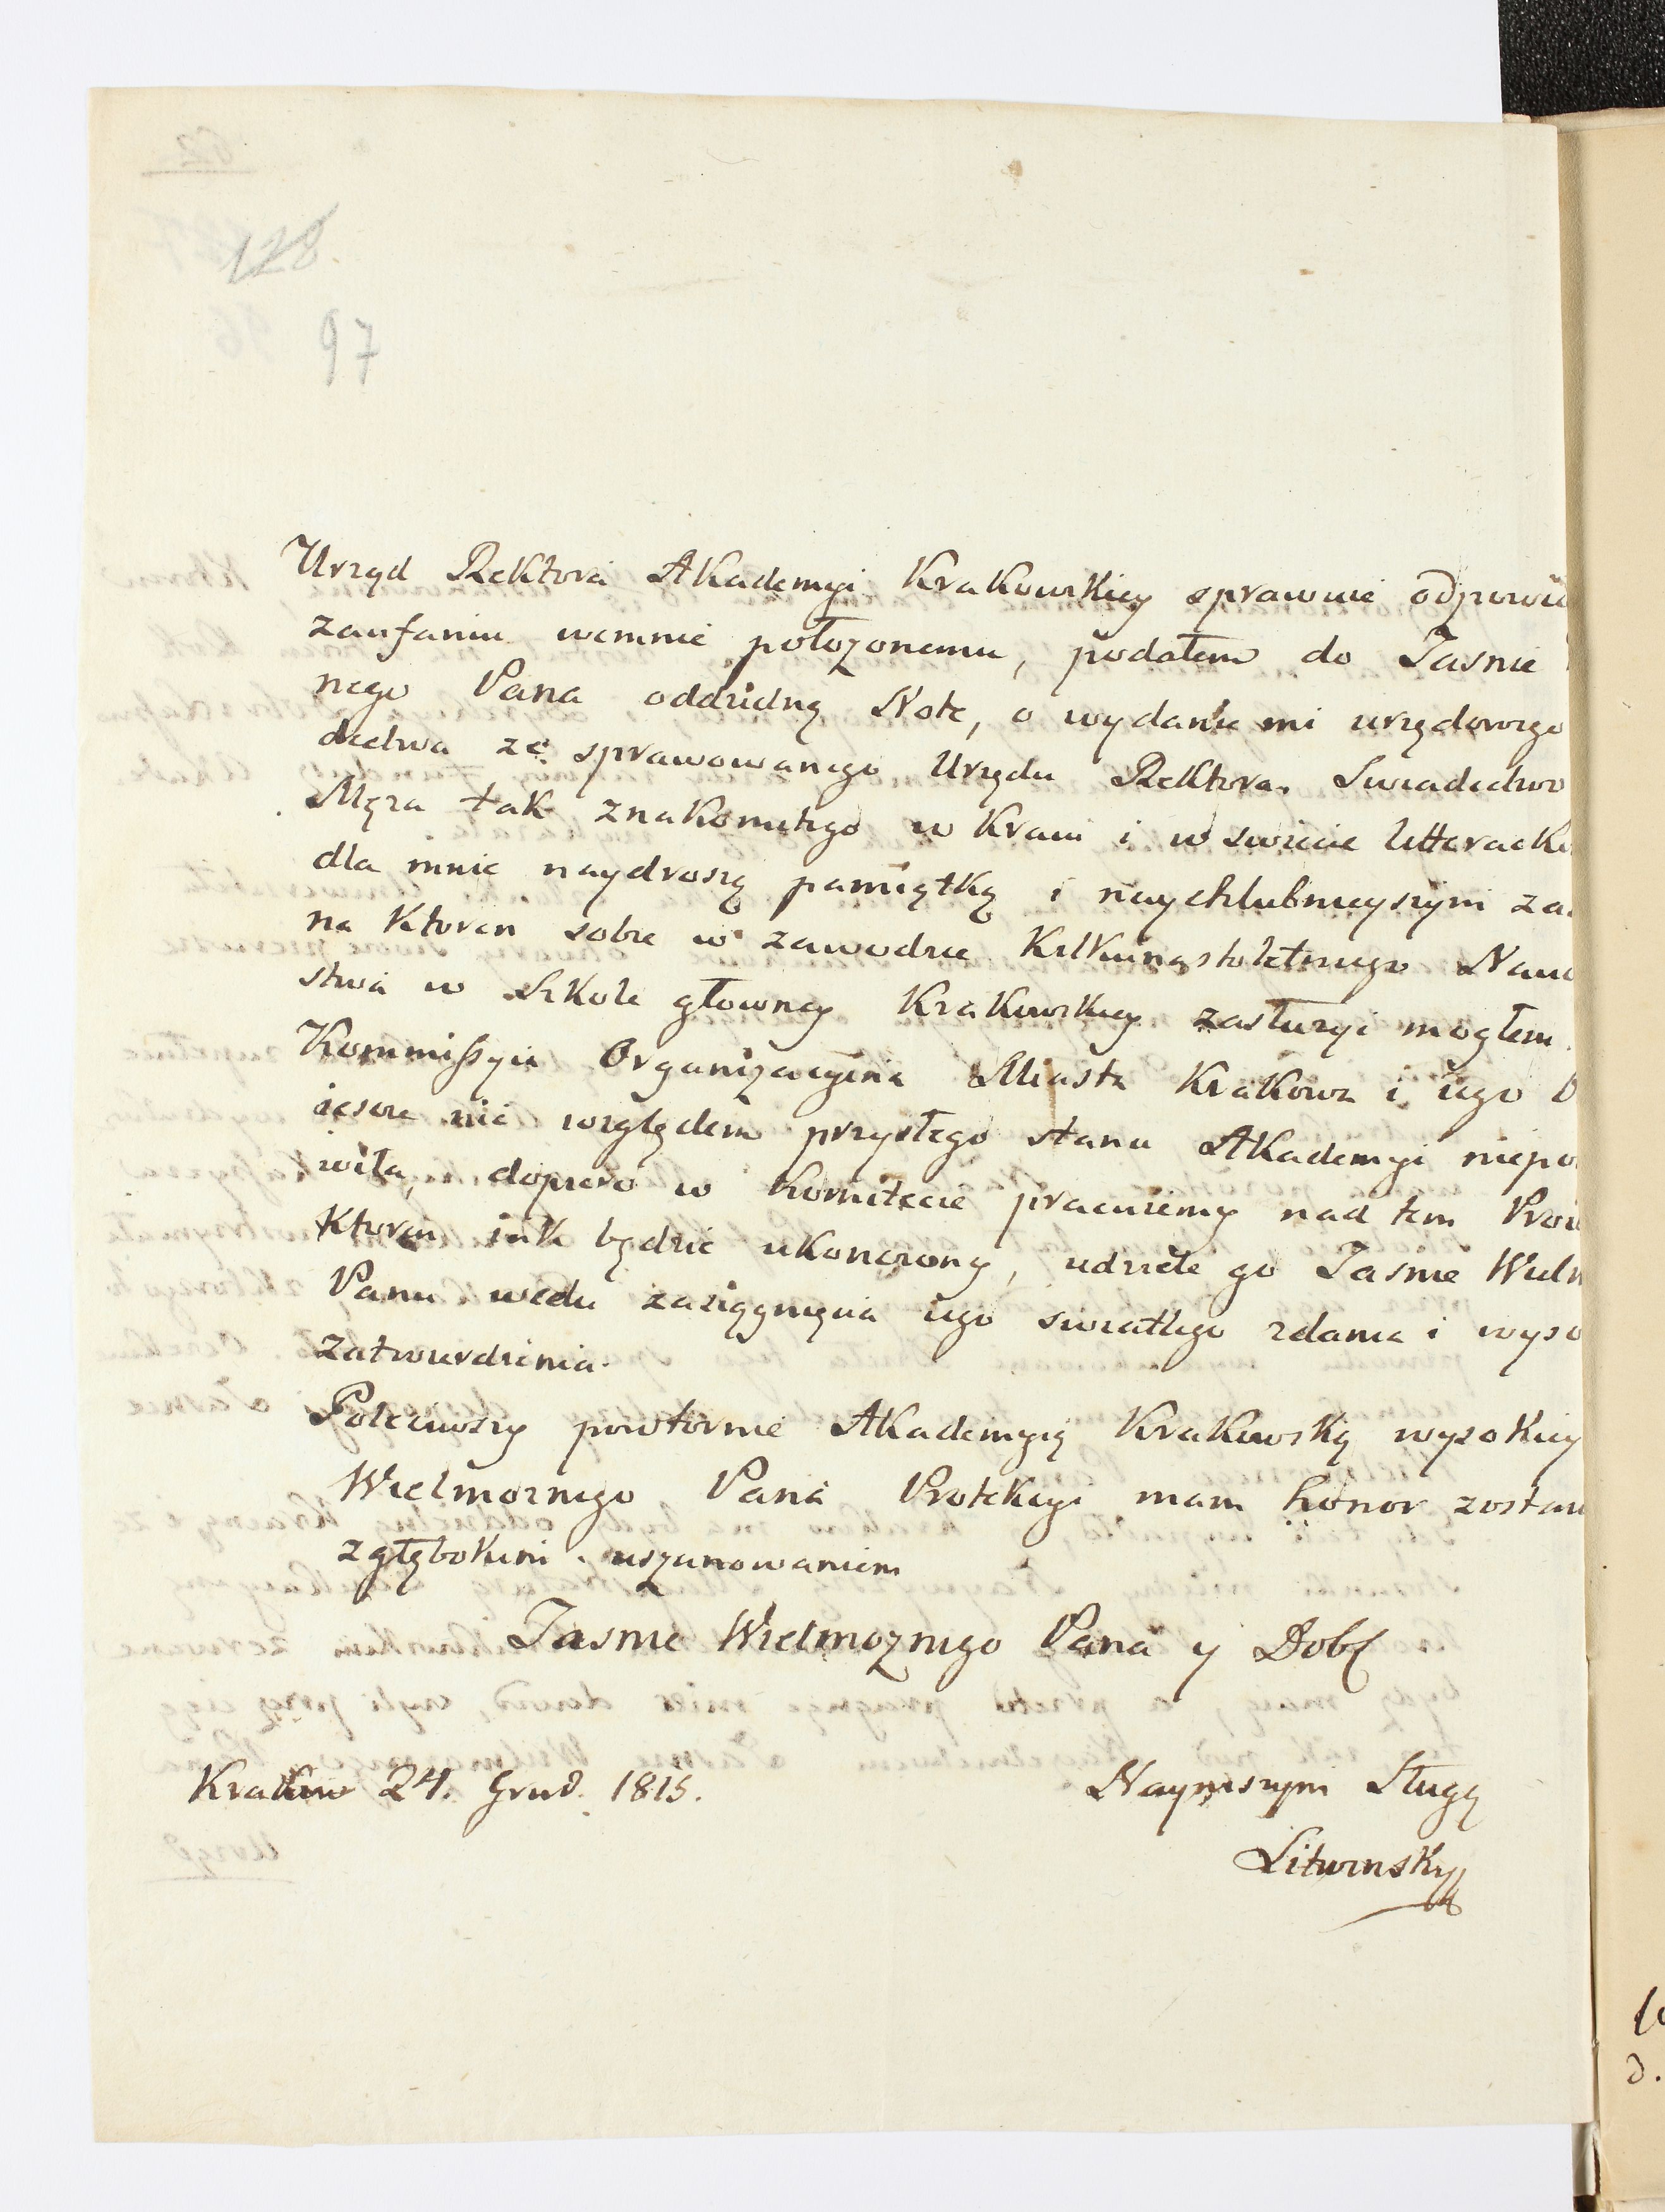 128
97
Urząd Rektora Akademyi Krakowskiey sprawuie odpowie
zaufaniu wemnie położonemu, podałem do Jasnie
nego Pana oddzielną Notę, o wydanie mi urzędowego
dectwa ze sprawowanego Urzędu Rektora. Swiadectwo
Męża tak znakomitego w Kraiu i w swiecie litterackim
dla mnie naydroszą pamiątką i naychlubnieyszym za
na ktoren sobie w zawodzie kilkunastoletniego Nauc
stwa w Szkole głowney Krakowskiey zasłużyć mogłem.
Kommissyia Organizacyina Miasta Krakowa i iego
ieszcze nic względem przyszłego stanu Akademyi niepo
wiła, dopiero w komitecie pracuiemy nad tem
ktoren iak będzie ukonczony, udziele go Jasnie Wielm
Panu wcelu zasiągnięnia iego swiatłego zdania i wyso
zatwierdzenia.
Poleciwszy powtornie Akademyią Krakowską wysokiey
Wielmoznego Pana Protekcyi mam honor zostaw
zgłębokim uszanowaniem
Jasnie Wielmoznego Pana y Dob
Krakow 24. Grud. 1815.
Nayniszym Sługą
Litwinsky